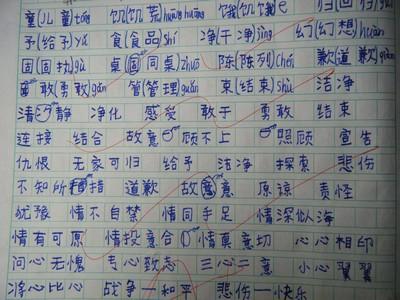 童(儿童)tóng 饥(饥荒)huāng 饿(饥饿)è 归(回归)
予(给予)yǔ 食(食品)shí 净(干净)jìng 幻(幻想)huàn
固(固执)gù 桌(同桌)zhuō 陈(陈列)chén 歉(道歉)qiàn
敢(勇敢)gǎn 管(管理)guǎn 束(结束)shù 洁净
清静 净化 感受 敢于 勇敢 结束
连接 结合 故意 顾不上 照顾 宣告
仇恨 无家可归 给予 洁净 探索 悲伤
不知所措 道歉 故意 原谅 责怪
犹豫 情不自禁 情同手足 情深似海
情有可原 情投意合 情真意切 心心相印
问心无愧 专心致志 三心二意 小心翼翼
将心比心 战争—和平 悲伤—快乐